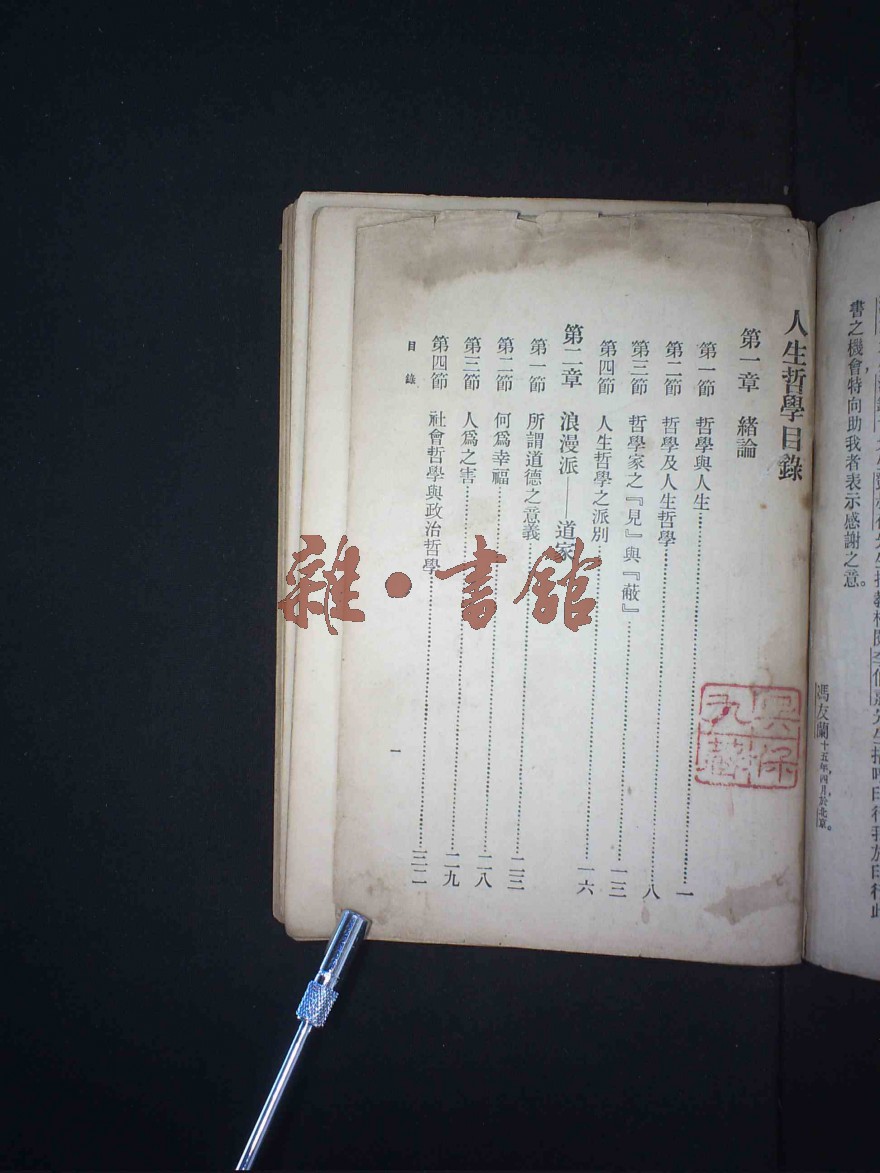 書之機會特向助我者表示感謝之意。
馮友蘭十五年，四月，於北京。
人生哲學目錄
第一章 緒論
第一節 哲學與人生……一
第二節 哲學及人生哲學……八
第三節 哲學家之『見』與『蔽』……一三
第四節 人生哲學之派別……一六
第二章 浪漫派——道家
第一節 所謂道德之意義……二三
第二節 何爲幸福……二八
第三節 人爲之害……二九
第四節 社會哲學與政治哲學……三二
目錄
一
雜·書館